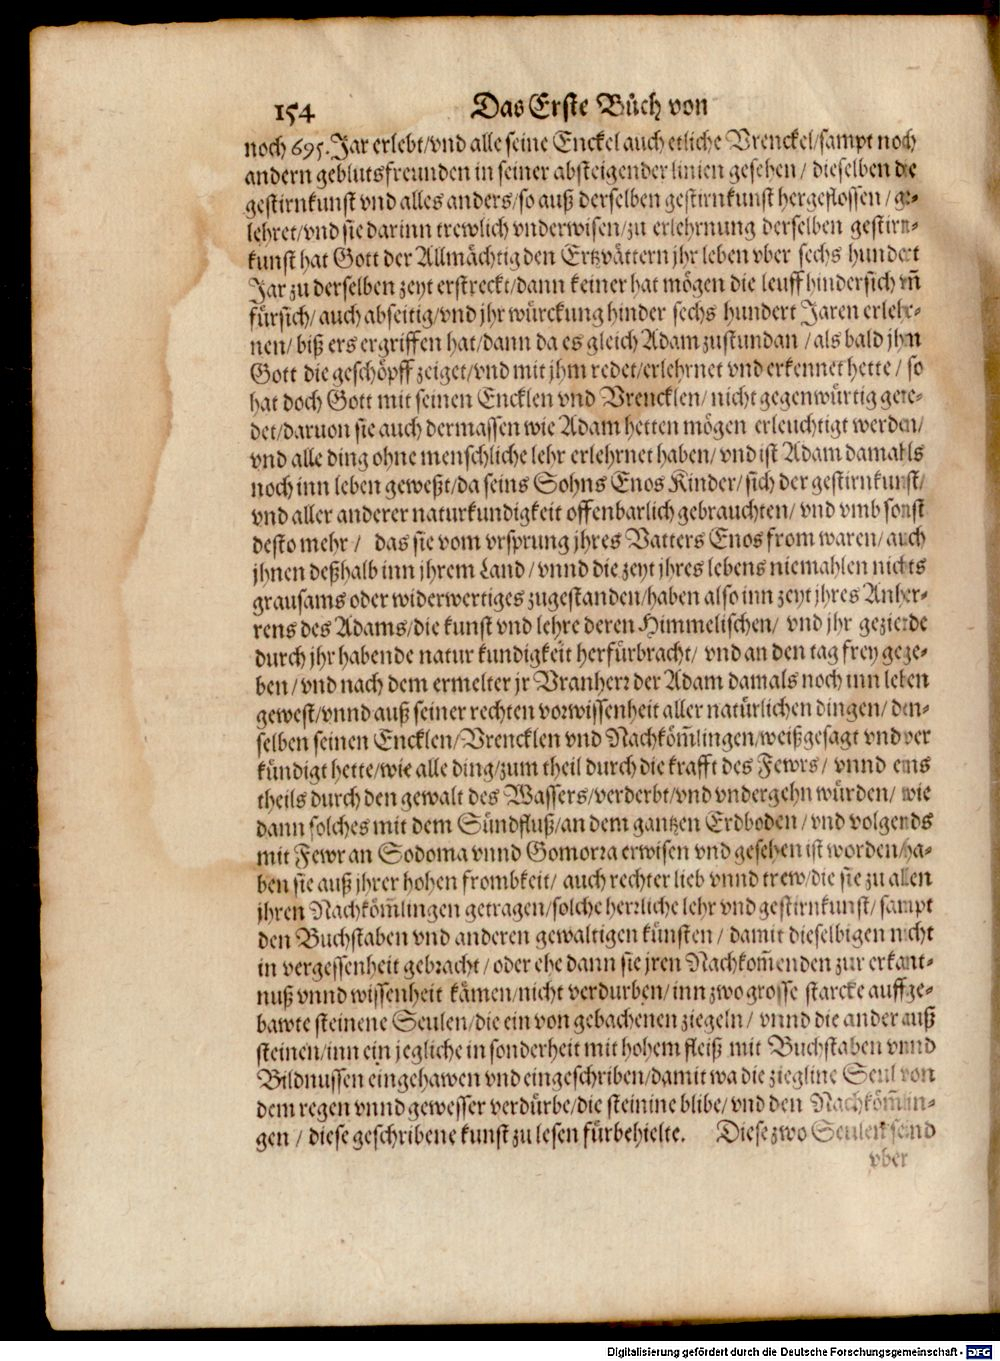 154 Das Erste Bůch von
noch 695. Jar erlebt/vnd alle seine Enckel auch etliche Vrenckel/sampt noch
andern geblutsfreunden in seiner absteigender linien gesehen/ dieselben die
gestirnkunst vnd alles anders/so auß derselben gestirnkunst hergeflossen/ ge-
lehret/vnd sie darinn trewlich vnderwisen/zu erlehrnung derselben gestirn-
kunst hat Gott der Allmächtig den Ertzvättern jhr leben vber sechs hundert
Jar zu derselben zeyt erstreckt/dann keiner hat mögen die leuff hindersich vñ
fürsich/ auch abseitig/vnd jhr würckung hinder sechs hundert Jaren erlehr-
nen/ biß ers ergriffen hat/dann da es gleich Adam zustundan/als bald jhn
Gott die geschöpff zeiget/vnd mit jhm redet/erlehrnet vnd erkennet hette/ so
hat doch Gott mit seinen Encklen vnd Vrencklen/ nicht gegenwürtig gere-
det/daruon sie auch dermassen wie Adam hetten mögen erleuchtigt werden/
vnd alle ding ohne menschliche lehr erlehrnet haben/ vnd ist Adam damahls
noch inn leben geweßt/da seins Sohns Enos Kinder/ sich der gestirnkunst/
vnd aller anderer naturkundigkeit offenbarlich gebrauchten/ vnd vmb sonst
desto mehr/ das sie vom vrsprung jhres Vatters Enos from waren/ auch
jhnen deßhalb inn jhrem Land/ vnnd die zeyt jhres lebens niemahlen nichts
grausams oder widerwertiges zugestanden/haben also inn zeyt jhres Anher-
rens des Adams/die kunst vnd lehre deren Himmelischen/ vnd jhr gezierde
durch jhr habende natur kundigkeit herfürbracht/ vnd an den tag frey gege-
ben/ vnd nach dem ermelter jr Vranherr der Adam damals noch inn leben
gewest/vnnd auß seiner rechten vorwissenheit aller natürlichen dingen/ den-
selben seinen Encklen/Vrencklen vnd Nachköm̃lingen/weißgesagt vnd ver
kündigt hette/wie alle ding/zum theil durch die krafft des Fewrs/ vnnd eins
theils durch den gewalt des Wassers/verderbt/vnd vndergehn würden/ wie
dann solches mit dem Sündfluß/an dem gantzen Erdboden/ vnd volgends
mit Fewr an Sodoma vnnd Gomorra erwisen vnd gesehen ist worden/ha-
ben sie auß jhrer hohen frombkeit/ auch rechter lieb vnnd trew/die sie zu allen
jhren Nachköm̃lingen getragen/solche herrliche lehr vnd gestirnkunst/ sampt
den Buchstaben vnd anderen gewaltigen künsten/ damit dieselbigen nicht
in vergessenheit gebracht/ oder ehe dann sie jren Nachkom̃enden zur erkant-
nuß vnnd wissenheit kämen/nicht verdurben/ inn zwo grosse starcke auffge-
bawte steinene Seulen/die ein von gebachenen ziegeln/ vnnd die ander auß
steinen/inn ein jegliche in sonderheit mit hohem fleiß mit Buchstaben vnnd
Bildnussen eingehawen vnd eingeschriben/damit wa die ziegline Seul von
dem regen vnnd gewesser verdürbe/die steinine blibe/ vnd den Nachköm̃lin-
gen/ diese geschribene kunst zu lesen fürbehielte. Diese zwo Seulen seind
vber
Digitalisierung gefördert durch die Deutsche Forschungsgemeinschaft - DFG